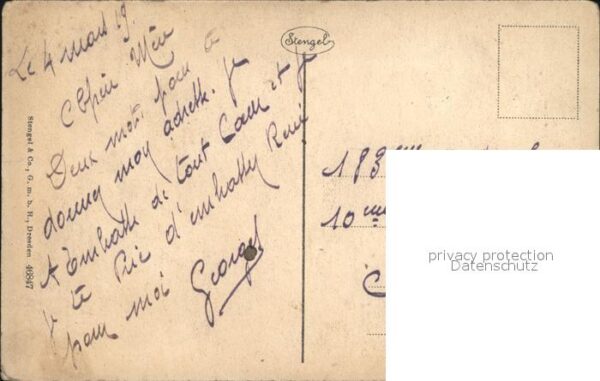 Le 4 mars 19.
Chère Mère
Deux mots pour te
donner mon adresse. Je
t'embrasse de tout Coeur et je
te Prie d'embrasser René
pour moi Georges
Stengel
Stengel & Co., G. m. b. H., Dresden 46847
183
10 ème
C
privacy protection
Datenschutz